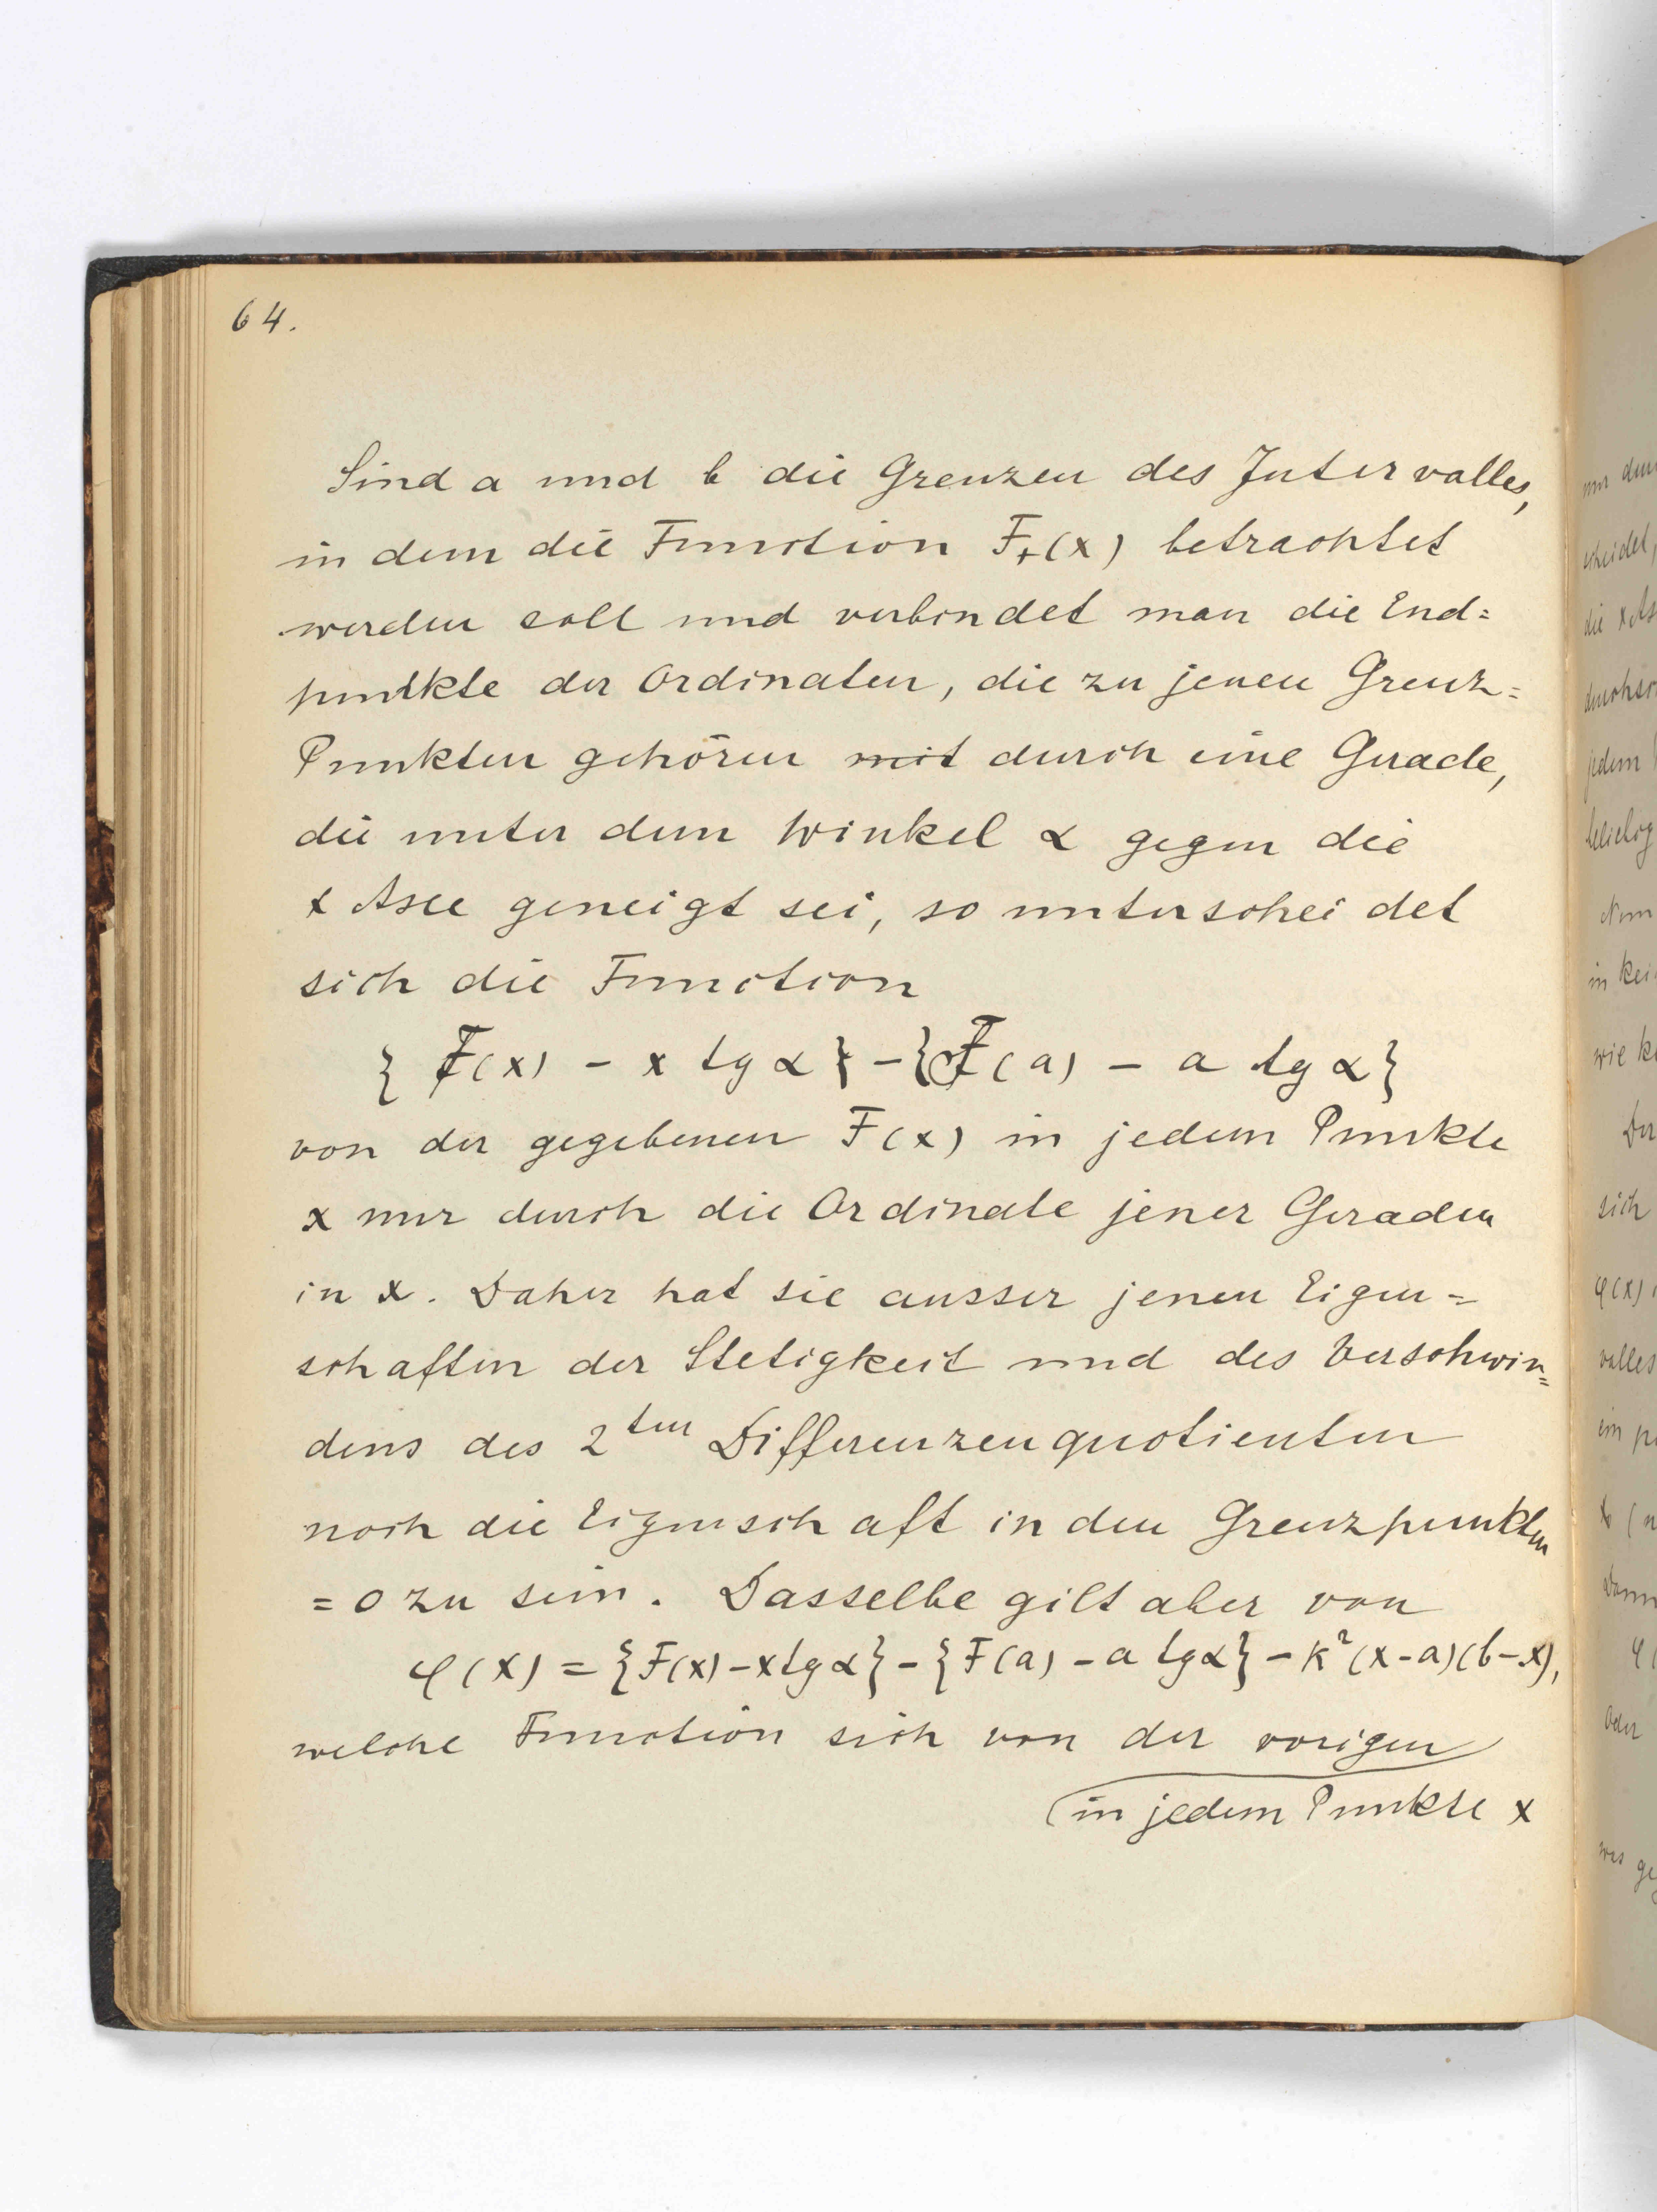 64.
Sind a und b die Grenzen des Intervalles,
in dem die Function F+(x) betrachtet
werden soll und verbindet man die End=
punkte der Ordinaten, die zu jenen Grenz=
Punkten gehören mit durch eine Gerade,
die unter dem Winkel α gegen die
x Axe geneigt sei, so unterscheidet
sich die Function
{ F(x) - x tg α } - { F(a) - a tg α }
von der gegebenen F(x) in jedem Punkte
x nur durch die Ordinate jener Geraden
in x. Daher hat sie ausser jenen Eigen=
schaften der Stetigkeit und des Verschwin=
dens des 2ten Differenzenquotienten
noch die Eigenschaft in den Grenzpunkten
= 0 zu sein. Dasselbe gilt aber von
φ(x) = {F(x) - x tg α} - {F(a) - a tg α} - k²(x-a)(b-x),
welche Function sich von der vorigen
in jedem Punkte x
nur
die x
jedem
in
wie
sich
φ(x)
valles
ein
φ(
oder
was